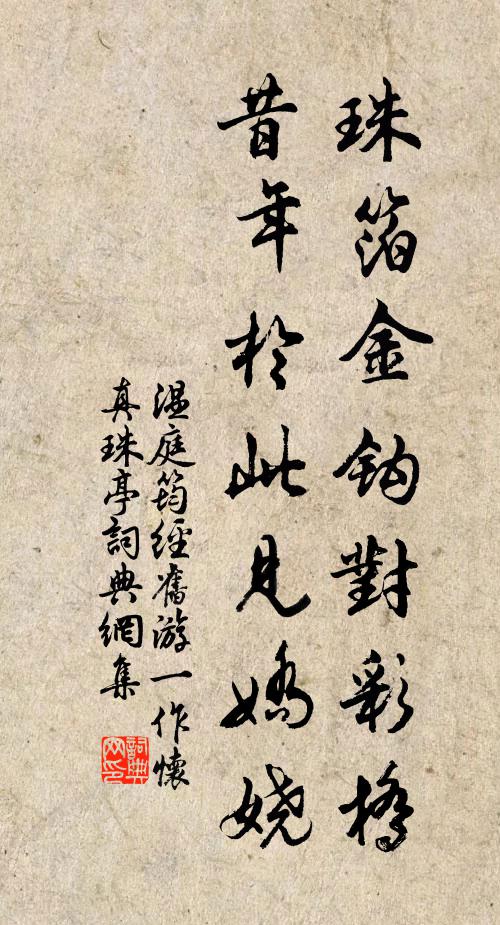 珠箔金鈎對彩橋
昔年於此見嬌嬈
温庭筠經舊游一作懷
真珠亭詞典網集
詞典網印